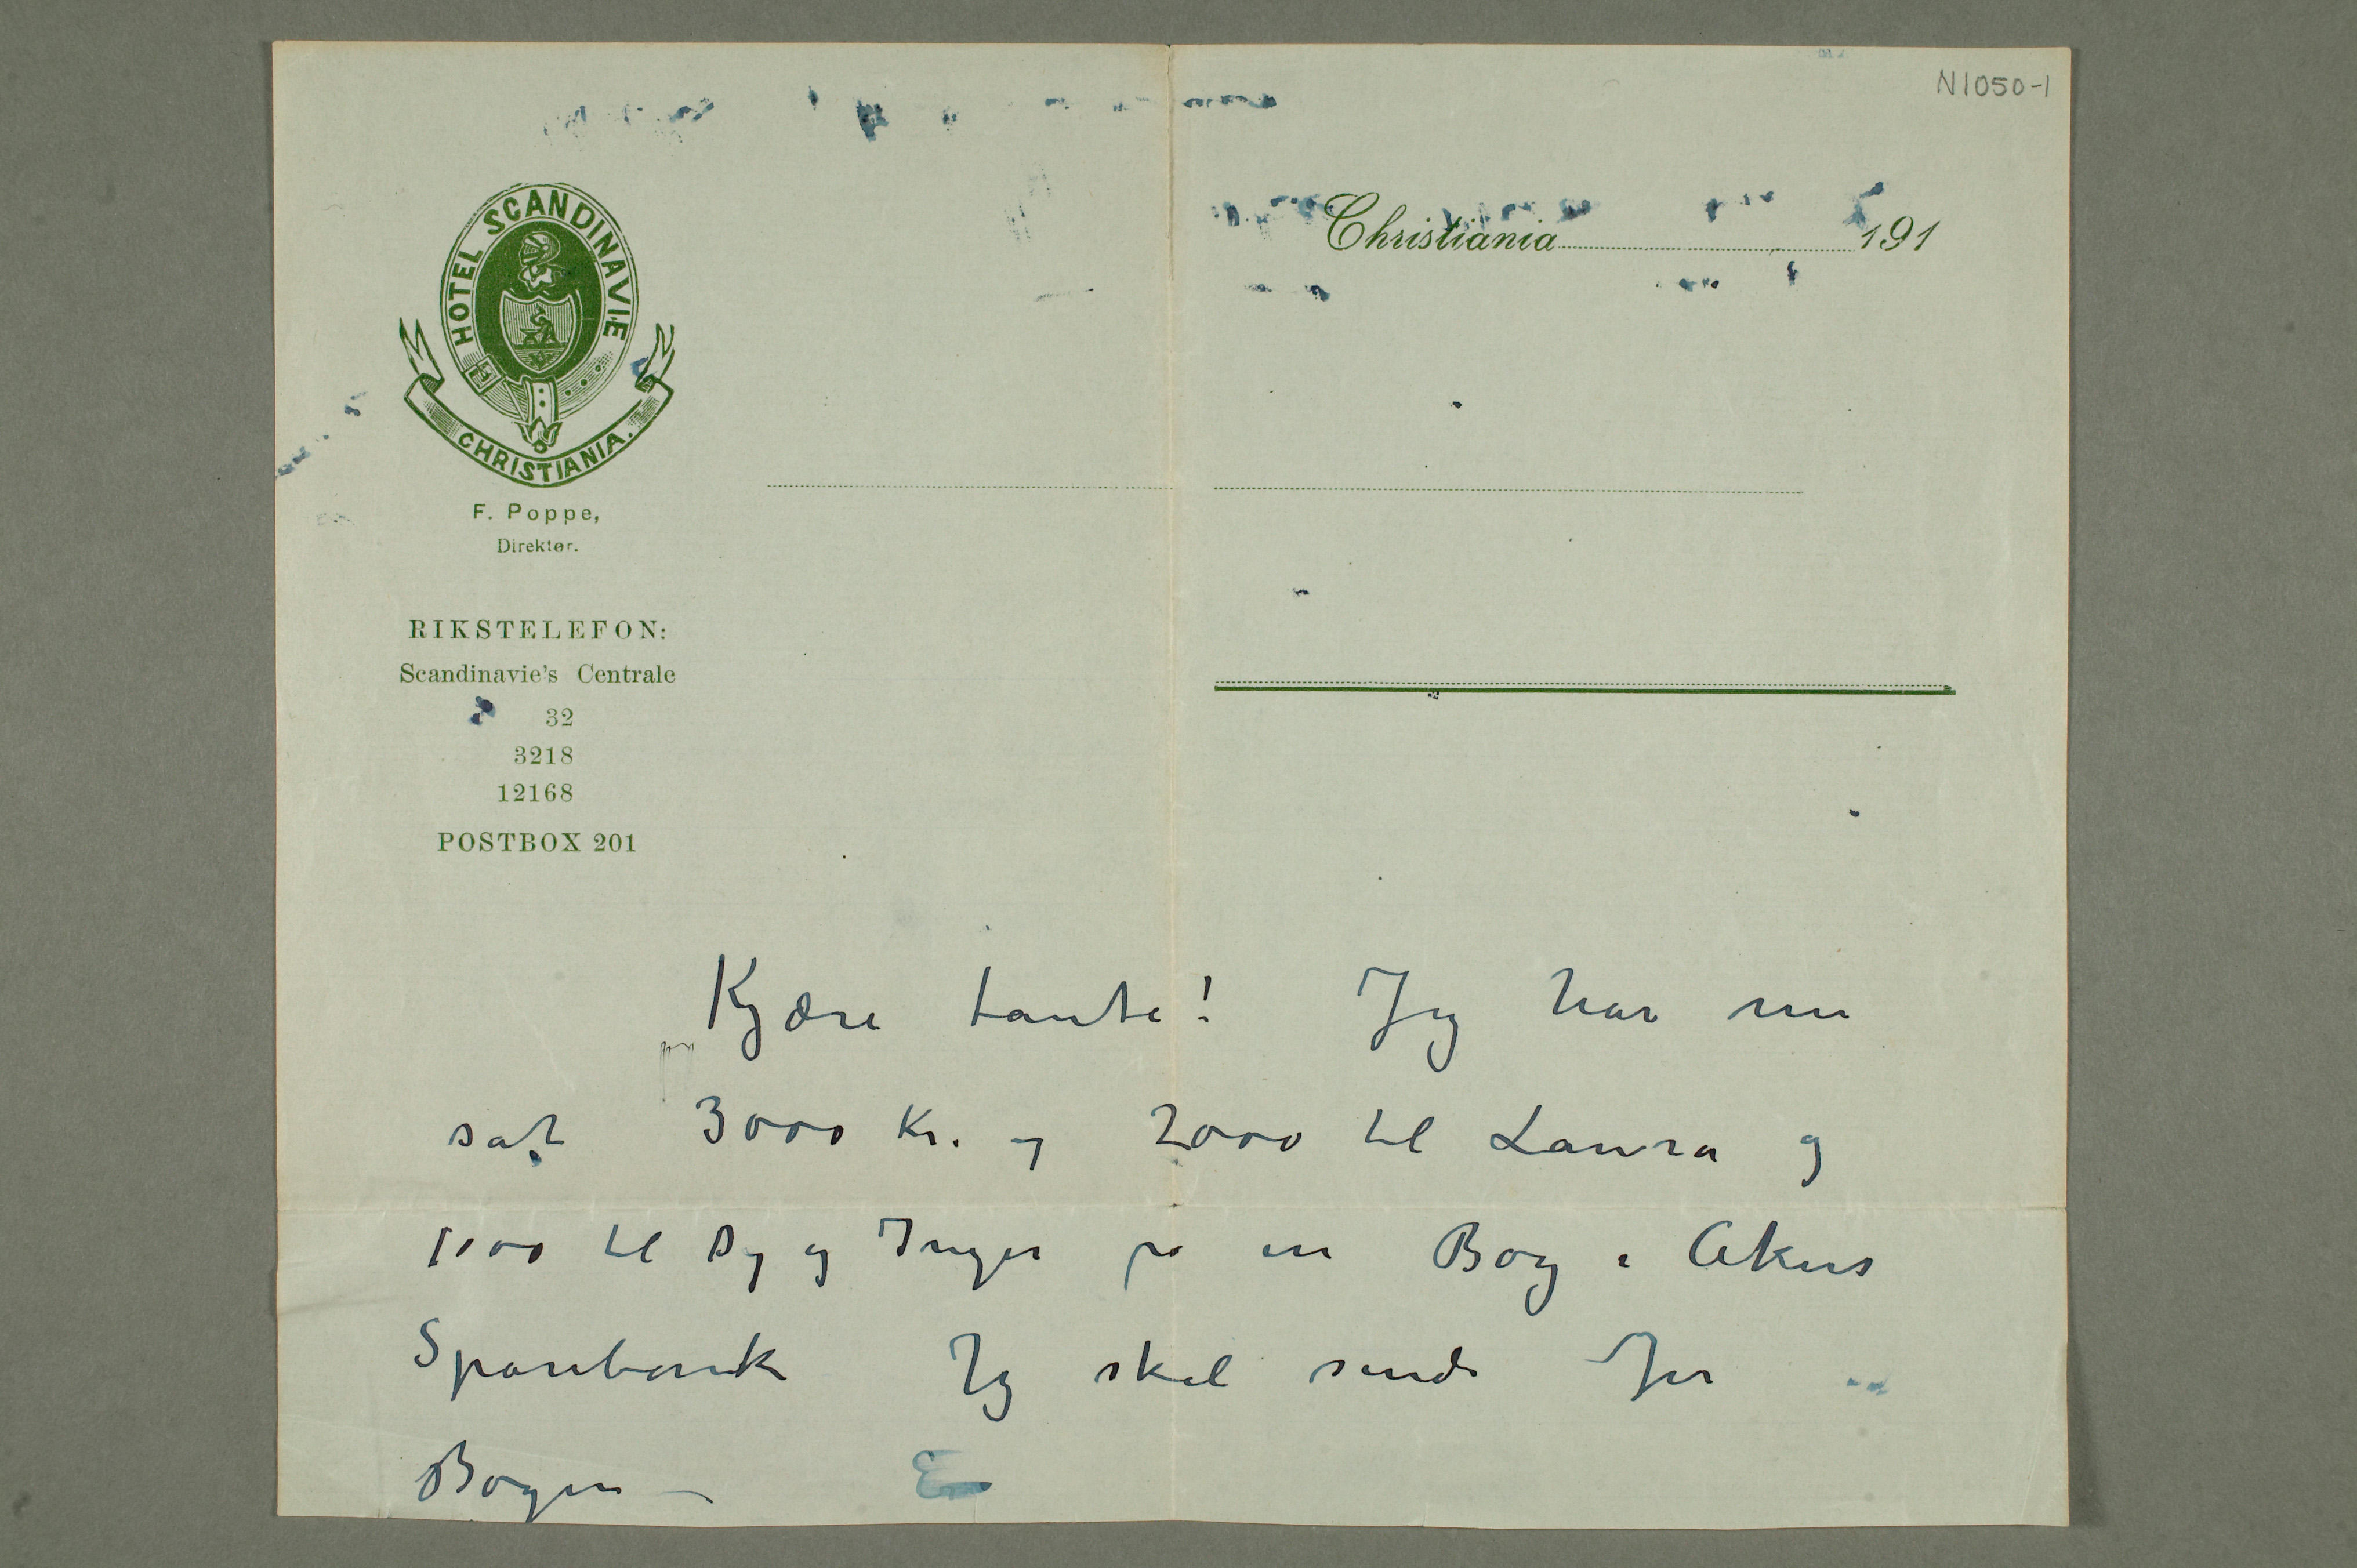 N1050-1
HOTEL SCANDINAVIE
CHRISTIANIA.
Christiania 191
F. Poppe,
Direktør.
RIKSTELEFON:
Scandinavie's Centrale
32
3218
12168
POSTBOX 201
Kjære tante! Jeg har nu
sat 3000 Kr. og 2000 til Laura og
1000 til Dig og Inger på en Bog i Akers
Sparebank Jeg skal sende Jer
Bogen –